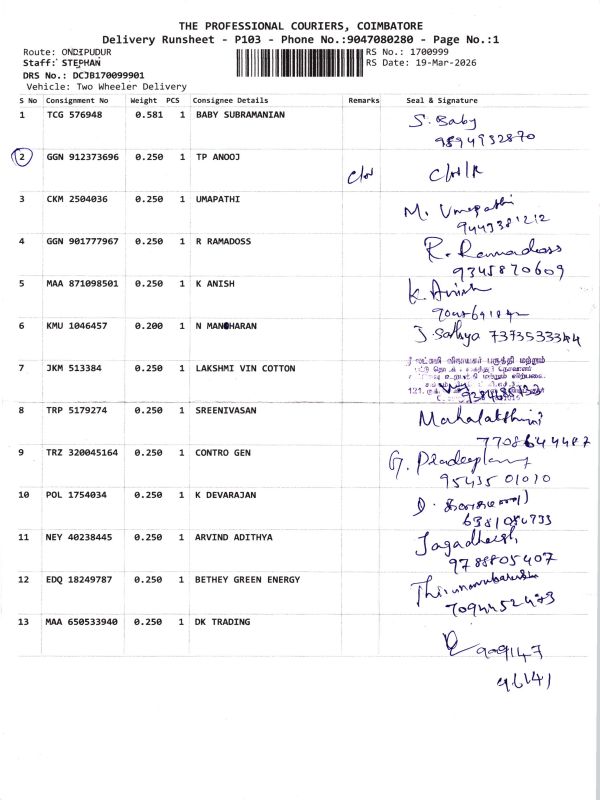 THE PROFESSIONAL COURIERS, COIMBATORE
Delivery Runsheet - P103 - Phone No.:9047080280 - Page No.:1
Route: ONDIPUDUR
RS No.: 1700999
Staff: STEPHAN
RS Date: 19-Mar-2026
DRS No.: DCJB170099901
Vehicle: Two Wheeler Delivery
S No Consignment No Weight PCS Consignee Details Remarks Seal & Signature
1 TCG 576948 0.581 1 BABY SUBRAMANIAN S. Baby
9894932870
2 GGN 912373696 0.250 1 TP ANOOJ
3 CKM 2504036 0.250 1 UMAPATHI M. Umapathi
9443381212
4 GGN 901777967 0.250 1 R RAMADOSS R. Ramadoss
9345870609
5 MAA 871098501 0.250 1 K ANISH K. Anish
6 KMU 1046457 0.200 1 N MANOHARAN J. Sathya 7373533344
7 JKM 513384 0.250 1 LAKSHMI VIN COTTON
8 TRP 5179274 0.250 1 SREENIVASAN Mahalakshmi
7708644487
9 TRZ 320045164 0.250 1 CONTRO GEN G.
95435 01010
10 POL 1754034 0.250 1 K DEVARAJAN
6381086733
11 NEY 40238445 0.250 1 ARVIND ADITHYA Jagadheesh
9788805407
12 EDQ 18249787 0.250 1 BETHEY GREEN ENERGY
7094452473
13 MAA 650533940 0.250 1 DK TRADING
909147
96141